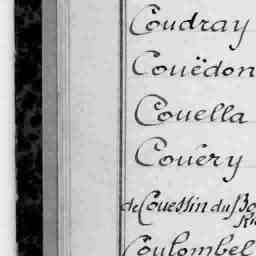 Coudray
Couëdon
Couella
Couëry
de Couessin du Bo
Coulombel